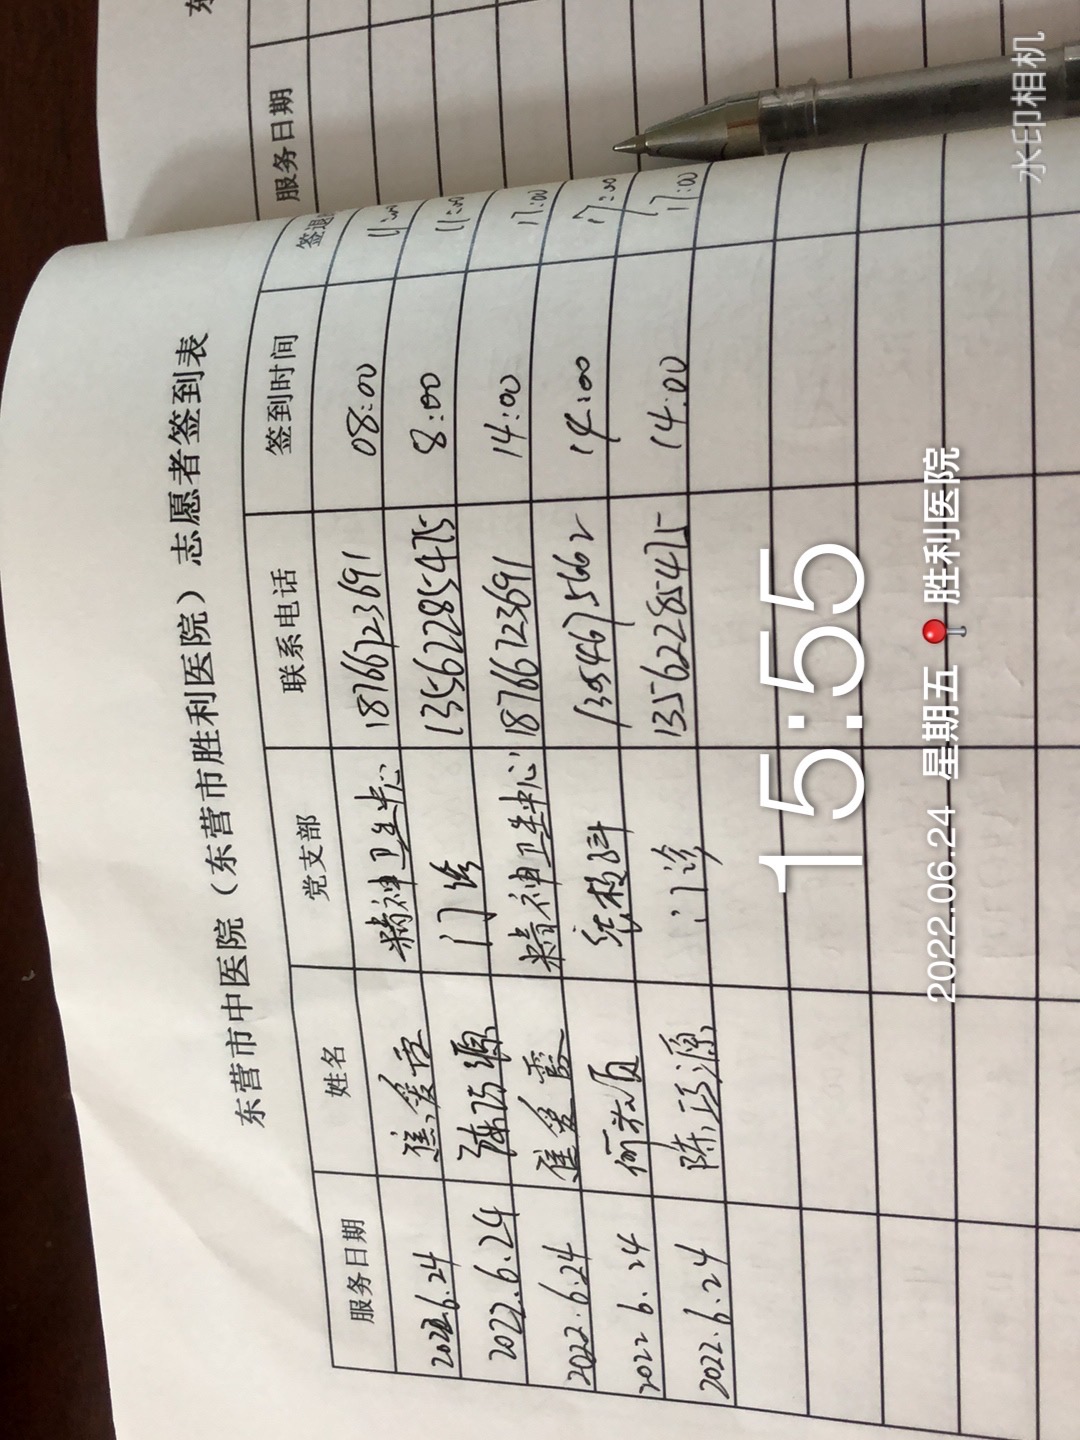 东营市中医院（东营市胜利医院）志愿者签到表
服务日期 姓名 党支部 联系电话 签到时间 签退
2022.6.24 精神卫生中心 18766723691 08:00 11:00
2022.6.24 门诊 13562285475 8:00 11:00
2022.6.24 崔爱霞 精神卫生中心 18766723691 14:00 17:00
2022.6.24 14:00 17:00
2022.6.24 陈巧源 门诊 13562285475 14:00 17:00
服务日期
15:55
2022.06.24 星期五 胜利医院
水印相机